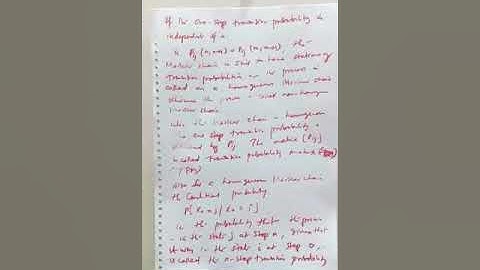 If the one-step transition probability is
independent of n
ie Pij (n, n+1) = Pij (m, m+1), the
Markov chain is said to have stationary
Transition probabilities or the process is
called as a homogeneous Markov chain
otherwise the process is called non-homogeneous
Markov chain
When the Markov chain is homogeneous
the one step transition probability is
denoted by Pij The matrix [Pij]
is called transition probability matrix
Also for a homogeneous Markov chain
the conditional probability
P[Xn = j / X0 = i]
is the probability that the process
is in the state j at step n, given that
it was in the state i at step 0,
is called the n-step transition probability